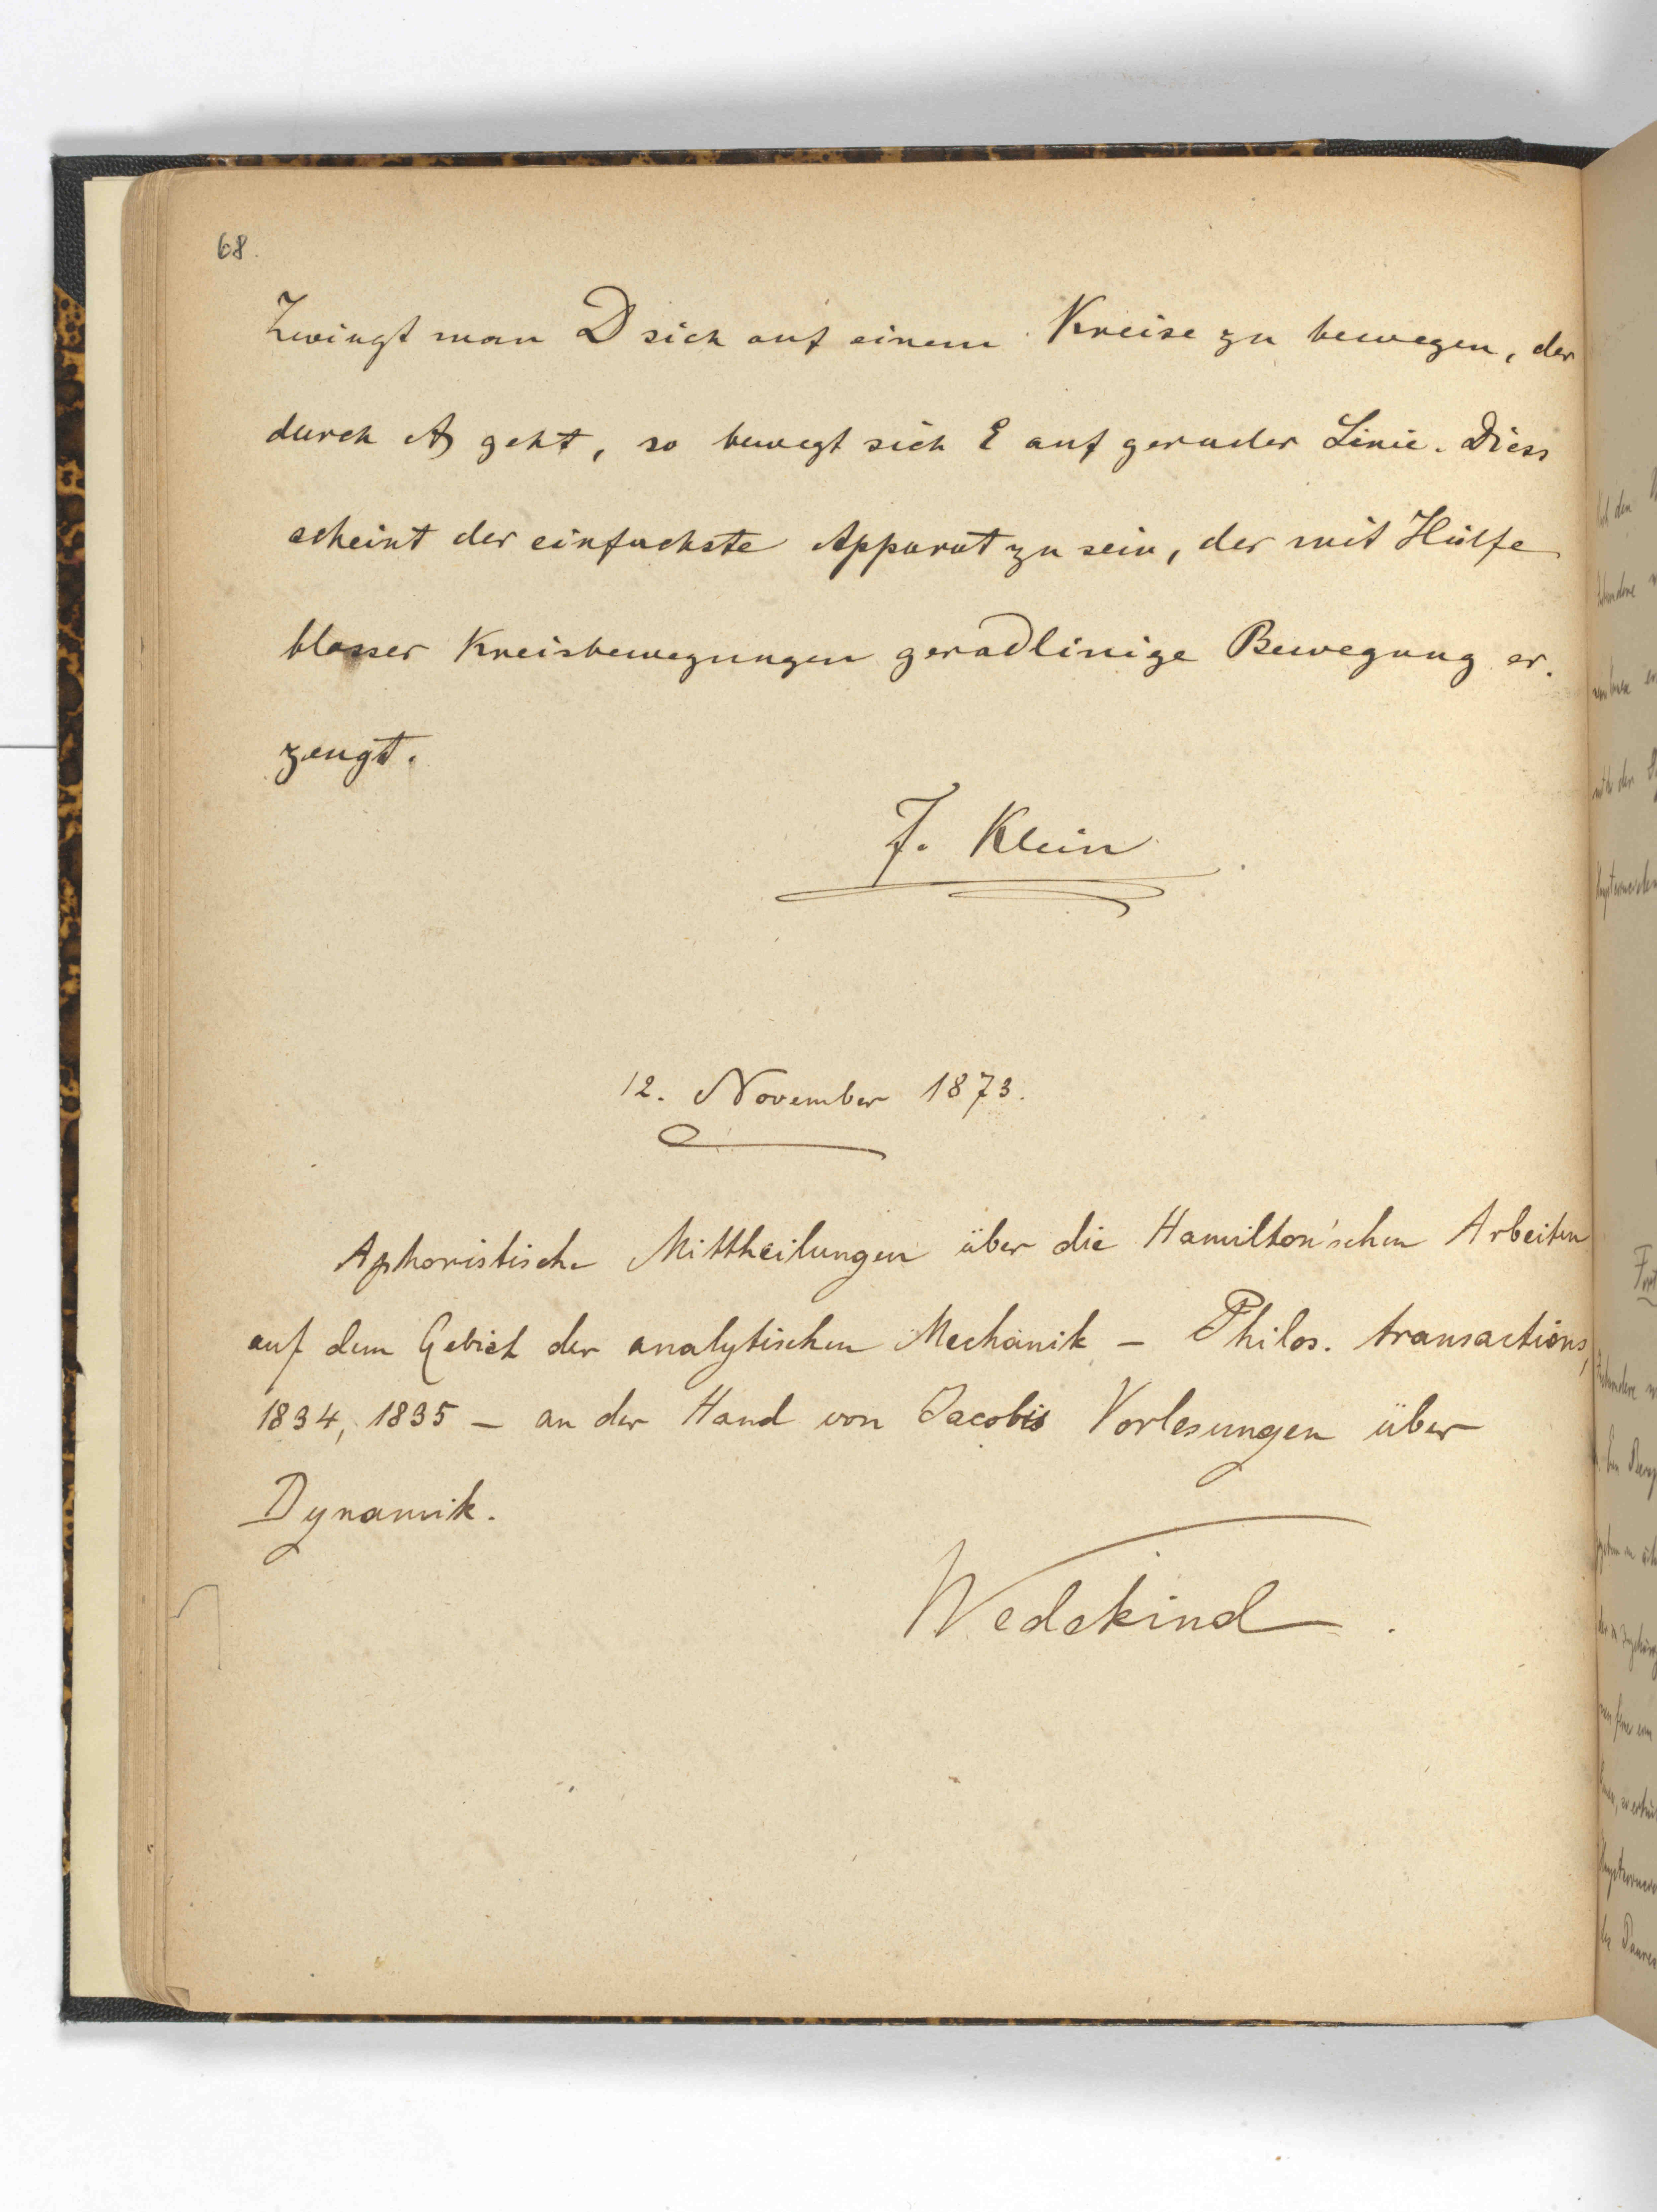 68.
Zwingt man D sich auf einem Kreise zu bewegen, der
durch A geht, so bewegt sich E auf gerader Linie. Diess
scheint der einfachste Apparat zu sein, der mit Hülfe
blosser Kreisbewegungen geradlinige Bewegung er-
zeugt.
F. Klein
12. November 1873.
Aphoristische Mittheilungen über die Hamilton'schen Arbeiten
auf dem Gebiet der analytischen Mechanik – Philos. transactions,
1834, 1835 – an der Hand von Jacobis Vorlesungen über
Dynamik.
Wedekind.